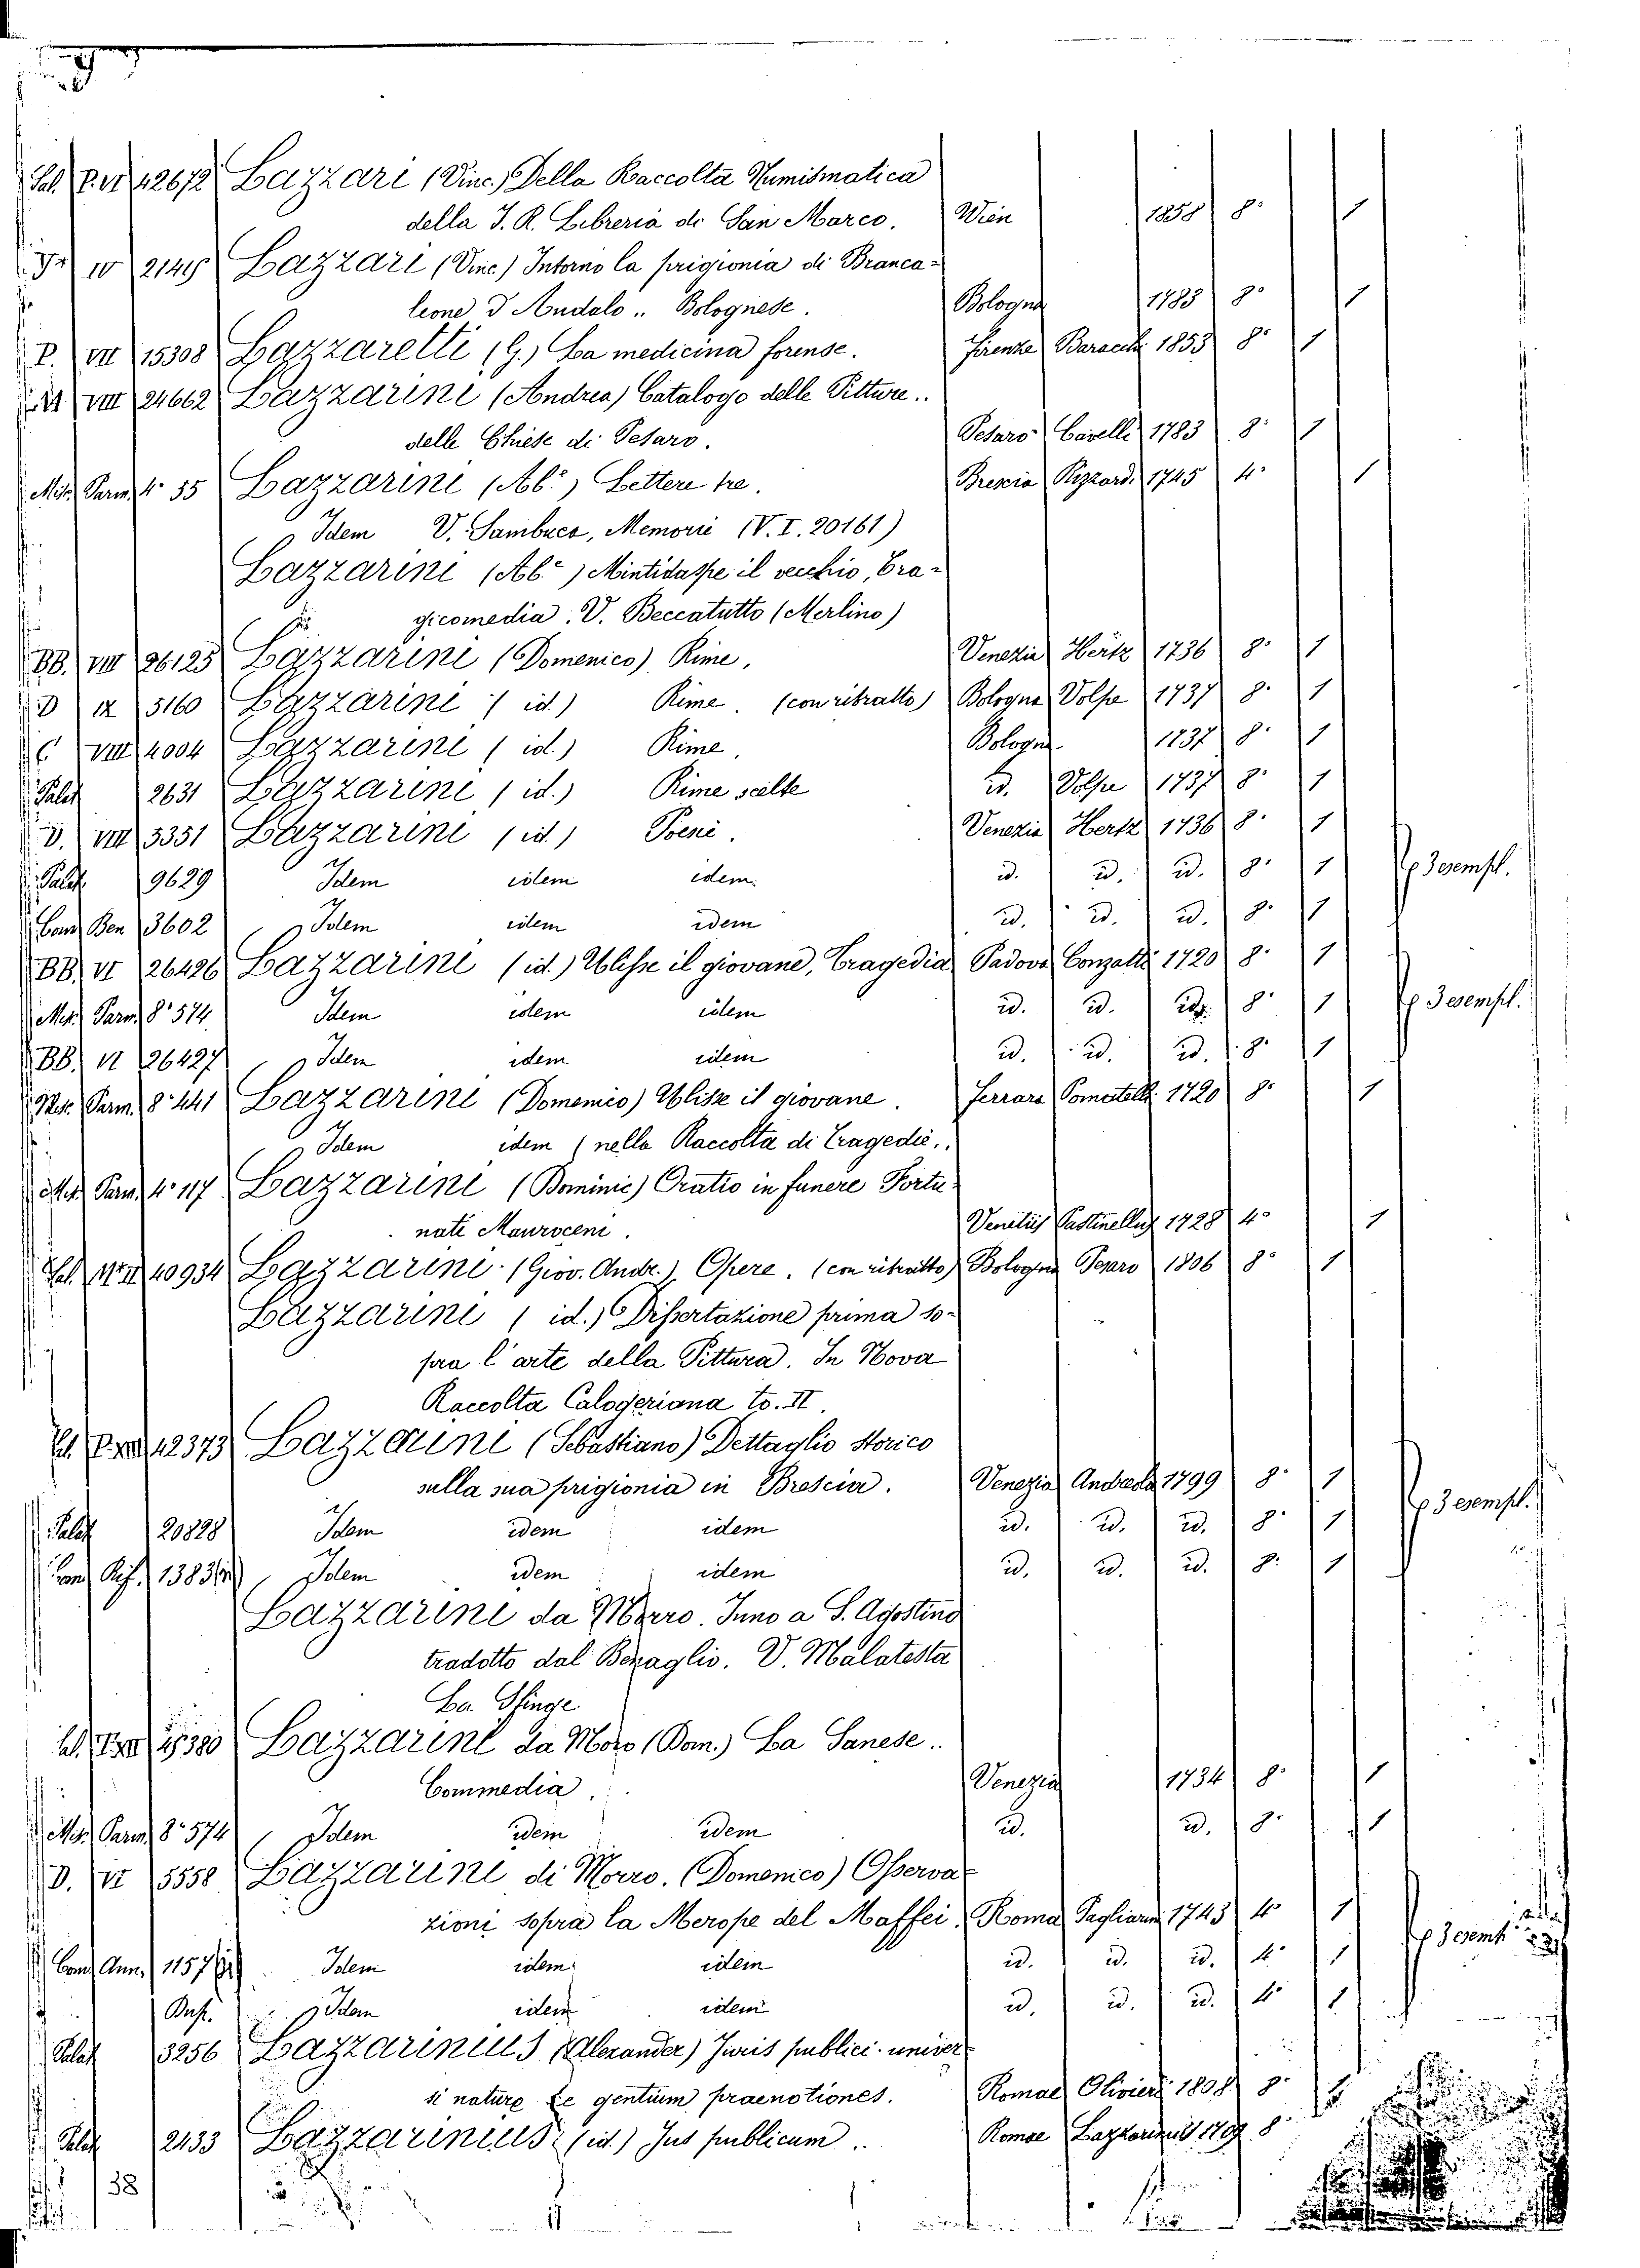 42672 Lazzari (Vinc.) Della Raccolta Numismatica
della I. R. Libreria di San Marco. Wien 1858 8° 1
IV 2144 Lazzari (Vinc.) Intorno la prigionia di Branca-
leone d'Andalo.. Bolognese. Bologna 1783 8° 1
P. VII 15308 Lazzaretti (G.) La medicina forense. Firenze Baracchi 1853 8° 1
VIII 24662 Lazzarini (Andrea) Catalogo delle Pitture..
delle Chiese di Pesaro. Pesaro Gavelli 1783 8° 1
Mis. Parm. 4° 55 Lazzarini (Ab.e) Lettere tre. Brescia Rizzardi 1745 4° 1
Idem V. Sambuca, Memorie (V. I. 20161)
Lazzarini (Ab.e) Mintidaspe il vecchio, Tra-
gicomedia. V. Beccatutto (Merlino)
BB. VIII 26125 Lazzarini (Domenico) Rime, Venezia Hertz 1736 8° 1
D IX 5160 Lazzarini (id.) Rime. (con ritratto) Bologna Volpe 1737 8° 1
C VIII 4004 Lazzarini (id.) Rime. Bologna 1737 8° 1
Palat 2631 Lazzarini (id.) Rime scelte id. Volpe 1737 8° 1
D. VIII 5351 Lazzarini (id.) Poesie. Venezia Hertz 1736 8° 1
Palat. 9629 Idem idem idem. id. id. id. 8° 1 3 esempl.
Con. Ben 3602 Idem idem idem id. id. id. 8° 1
BB. VI 26426 Lazzarini (id.) Ulisse il giovane, Tragedia Padova Conzatti 1720 8° 1
Mis. Parm. 8° 574 Idem idem idem id. id. id. 8° 1 3 esempl.
BB. VI 26427 Idem idem idem id. id. id. 8° 1
Mis. Parm. 8° 441 Lazzarini (Domenico) Ulisse il giovane. Ferrara Pomatelli 1720 8° 1
Idem idem (nella Raccolta di Tragedie..
Mis. Parm. 4° 117 Lazzarini (Dominic) Oratio in funere Fortu-
nati Mauroceni. Venetiis Pastinellus 1728 4° 1
40934 Lazzarini (Giov. Andr.) Opere. (con ritratto) Bologna Pesaro 1806 8° 1
Lazzarini (id.) Dissertazione prima so-
pra l'arte della Pittura. In Nova
Raccolta Calogeriana to. II.
42373 Lazzarini (Sebastiano) Dettaglio storico
sulla sua prigionia in Brescia. Venezia Andreola 1799 8° 1
Palat 20828 Idem idem idem id. id. id. 8° 1 3 esempl.
Con. Rif. 1383 Idem idem idem id. id. id. 8° 1
Lazzarini da Morro. Inno a S. Agostino
tradotto dal Benaglio. V. Malatesta
La Sfinge
Lazzarini da Moro (Dom.) La Sanese..
Commedia. Venezia 1734 8° 1
Mis. Parm. 8° 574 Idem idem idem id. id. 8° 1
D. VI 5558 Lazzarini di Morro. (Domenico) Osserva-
zioni sopra la Merope del Maffei. Roma Pagliarini 1743 4° 1
Con. Ann. 1157 Idem idem idem id. id. id. 4° 1 3 esemp
Dup. Idem idem idem id. id. id. 4° 1
Palat 3256 Lazzarinius (Alexander) Juris publici univer-
si nature et gentium praenotiones. Romae Olivieri 1808 8°
Palat 2433 Lazzarinius (id.) Jus publicum.. Romae 8°
38